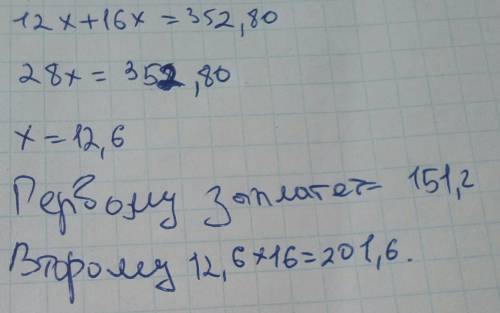 12x+16x=352,80
28x=352,80
x=12,6
Первому заплатет= 151,2
Второму 12,6×16=201,6.